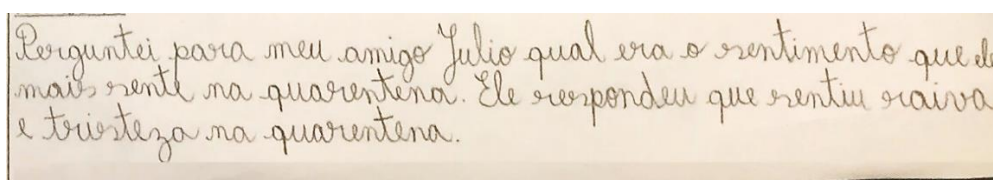 Perguntei para meu amigo Julio qual era o sentimento que ele
mais sente na quarentena. Ele respondeu que sentiu raiva
e tristeza na quarentena.